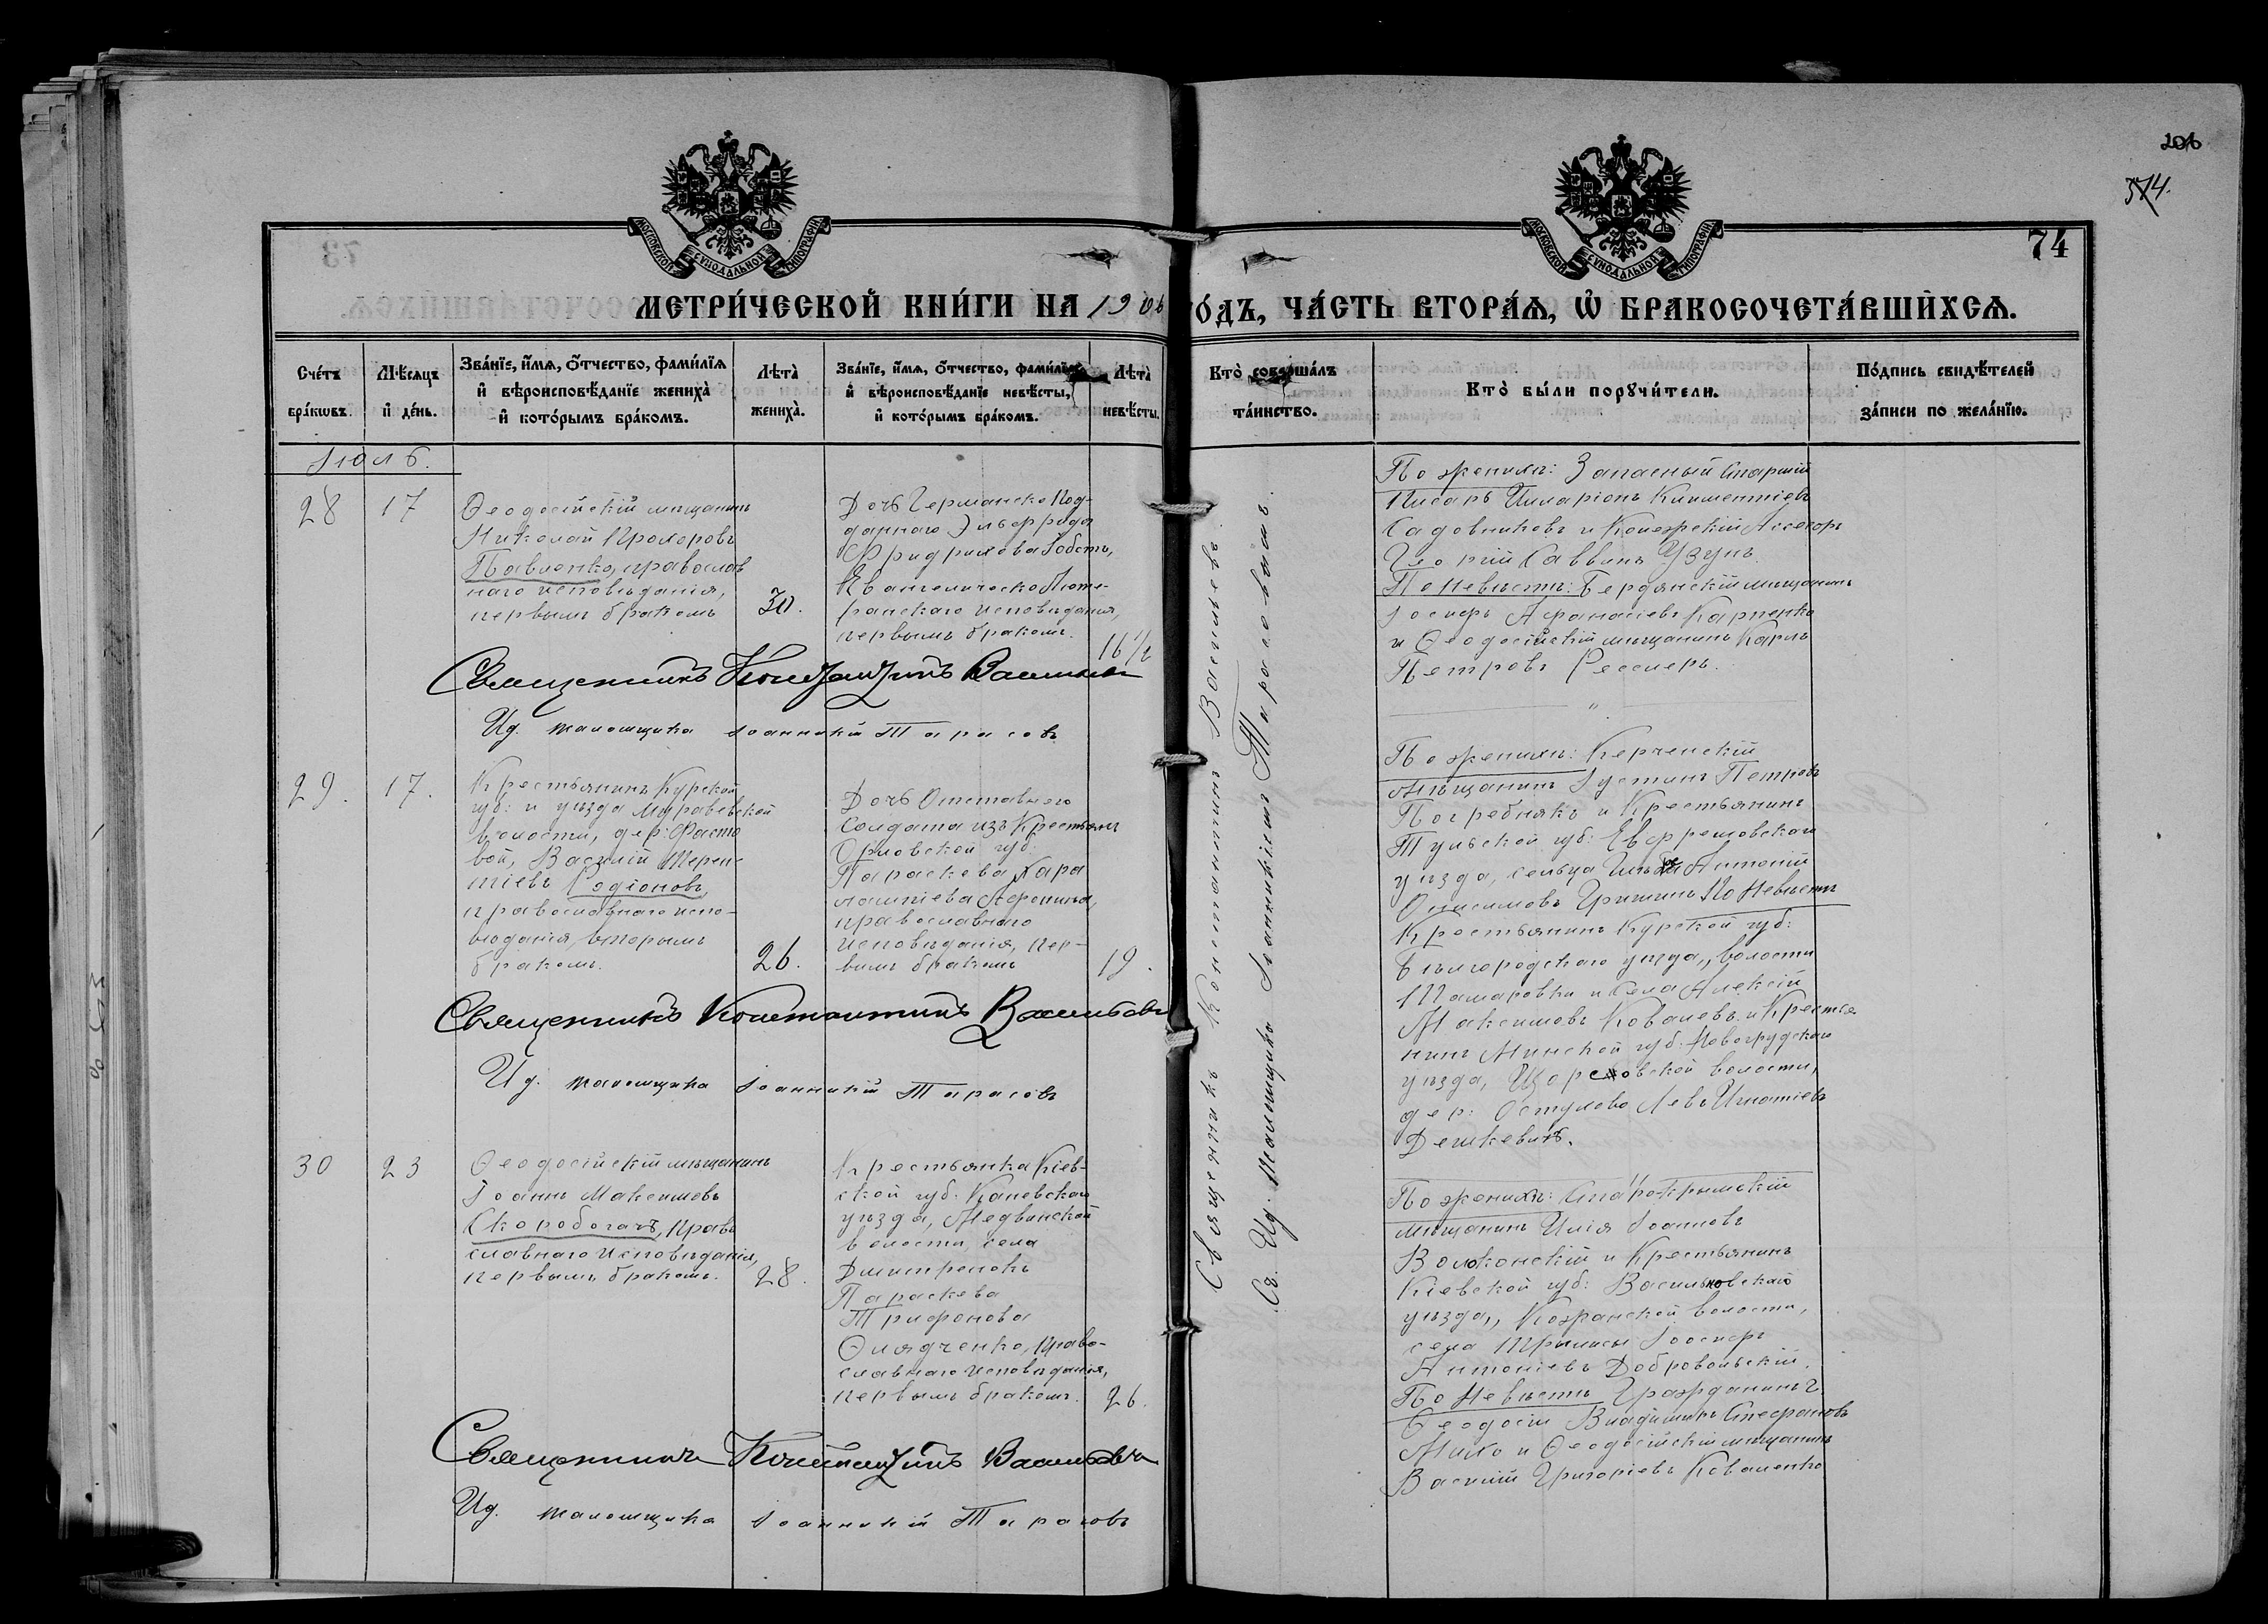 206
374.
74
МОСКОВСКОЙ СѴНОДАЛЬНОЙ ТИПОГРАФІИ
МОСКОВСКОЙ СѴНОДАЛЬНОЙ ТИПОГРАФІИ
МЕТРИ́ЧЕСКОЙ КНИ́ГИ НА 1906 ГО́ДЪ, ЧА́СТЬ ВТОРА́Ѧ, Ѡ҆ БРАКОСОЧЕТА́ВШИХСѦ.
Сче́тъ
бра́кѡвъ.
Мѣ́сѧцъ
и҆ де́нь.
Зва́нїе, и҆́мѧ, ѻ҆́тчество, фами́лїѧ
и҆ вѣроисповѣ́данїе жениха̀
и҆ кото́рымъ бра́комъ.
Лѣ́та̀
жениха̀.
Зва́нїе, и҆́мѧ, ѻ҆́тчество, фами́лїѧ
и҆ вѣроисповѣ́данїе невѣ́сты,
и҆ кото́рымъ бра́комъ.
Лѣ́та̀
невѣ́сты.
Кто̀ соверша́лъ
та́инство.
Кто̀ бы́ли порꙋчи́тели.
По́дпись свидѣ́телей
за́писи по жела́нїю.
Іюль.
28
17
Ѳеодосійскій мѣщанинъ
Николай Прохоровъ
Павленко, православ
наго исповѣданія,
первымъ бракомъ
30.
Дочь Германско Под-
даннаго
Фридрихова
Евангелическо Люте-
ранскаго исповѣданія,
первымъ бракомъ.
16½
По женихѣ: Запасный Старшій
Писарь Илларіонъ Климентіевъ
Садовниковъ и Коллежскій Ассесоръ
Георгій Саввинъ Узунъ.
По Невѣстѣ: Бердянскій мѣщанинъ
Іосифъ Афанасіевъ Карпенко
и Ѳеодосійскій мѣщанинъ Карлъ
Петровъ Ресслеръ.
Священникъ Константинъ Васильевъ
Ид. псаломщика Іоанникій Тарасовъ
29.
17.
Крестьянинъ Курской
губ: и уѣзда Муравьевской
волости, дер: Фасто
вой, Василій Терен-
тіевъ Родіоновъ,
православнаго испо-
вѣданія, вторымъ
бракомъ.
26.
Дочь Отставного
Солдата изъ Крестьянъ
Орловской губ:
Параскева Хара
лампіева Афонина,
православнаго
исповѣданія, пер-
вымъ бракомъ
19.
По женихѣ: Керченскій
мѣщанинъ Іустинъ Петровъ
Погребнякъ и Крестьянинъ
Тульской губ: Ефремовскаго
уѣзда, сельца Антоній
Онисимовъ Гришинъ По Невѣстѣ
Крестьянинъ Курской губ:
Бѣлгородскаго уѣзда, волости
Томаровки и села Алексій
Максимовъ Ковалевъ и Крестья
нинъ Минской губ. Новогрудскаго
уѣзда, Щорсовской волости,
дер: Левъ Игнатіевъ
Дешкевичъ.
Священникъ Константинъ Васильевъ
Ид. псаломщика Іоанникій Тарасовъ
30
23
Ѳеодосійскій мѣщанинъ
Іоаннъ Максимовъ
Скоробогачъ, Право
славнаго исповѣданія,
первымъ бракомъ.
28.
Крестьянка Кіев-
ской губ. Каневскаго
уѣзда, Медвинской
волости, села
Дмитренокъ
Параскева
Трифонова
Олядченко, Право-
славнаго исповѣданія,
первымъ бракомъ.
26.
По женихѣ: Старокрымскій
мѣщанинъ Илія Іоанновъ
Волконскій и Крестьянинъ
Кіевской губ: Васильковскаго
уѣзда, Кожанской волости,
села Трилисы Іосифъ
Антоніевъ Добровольскій.
По Невѣстѣ Гражданинъ г.
Ѳеодосіи Владиміръ Стефановъ
и Ѳеодосійскій мѣщанинъ
Василій Григоріевъ Коваленко
Священникъ Константинъ Васильевъ
Ид. псаломщика Іоанникій Тарасовъ
Священникъ Константинъ Васильевъ
Съ Ид. Псаломщика Іоанникіемъ Тарасовымъ.